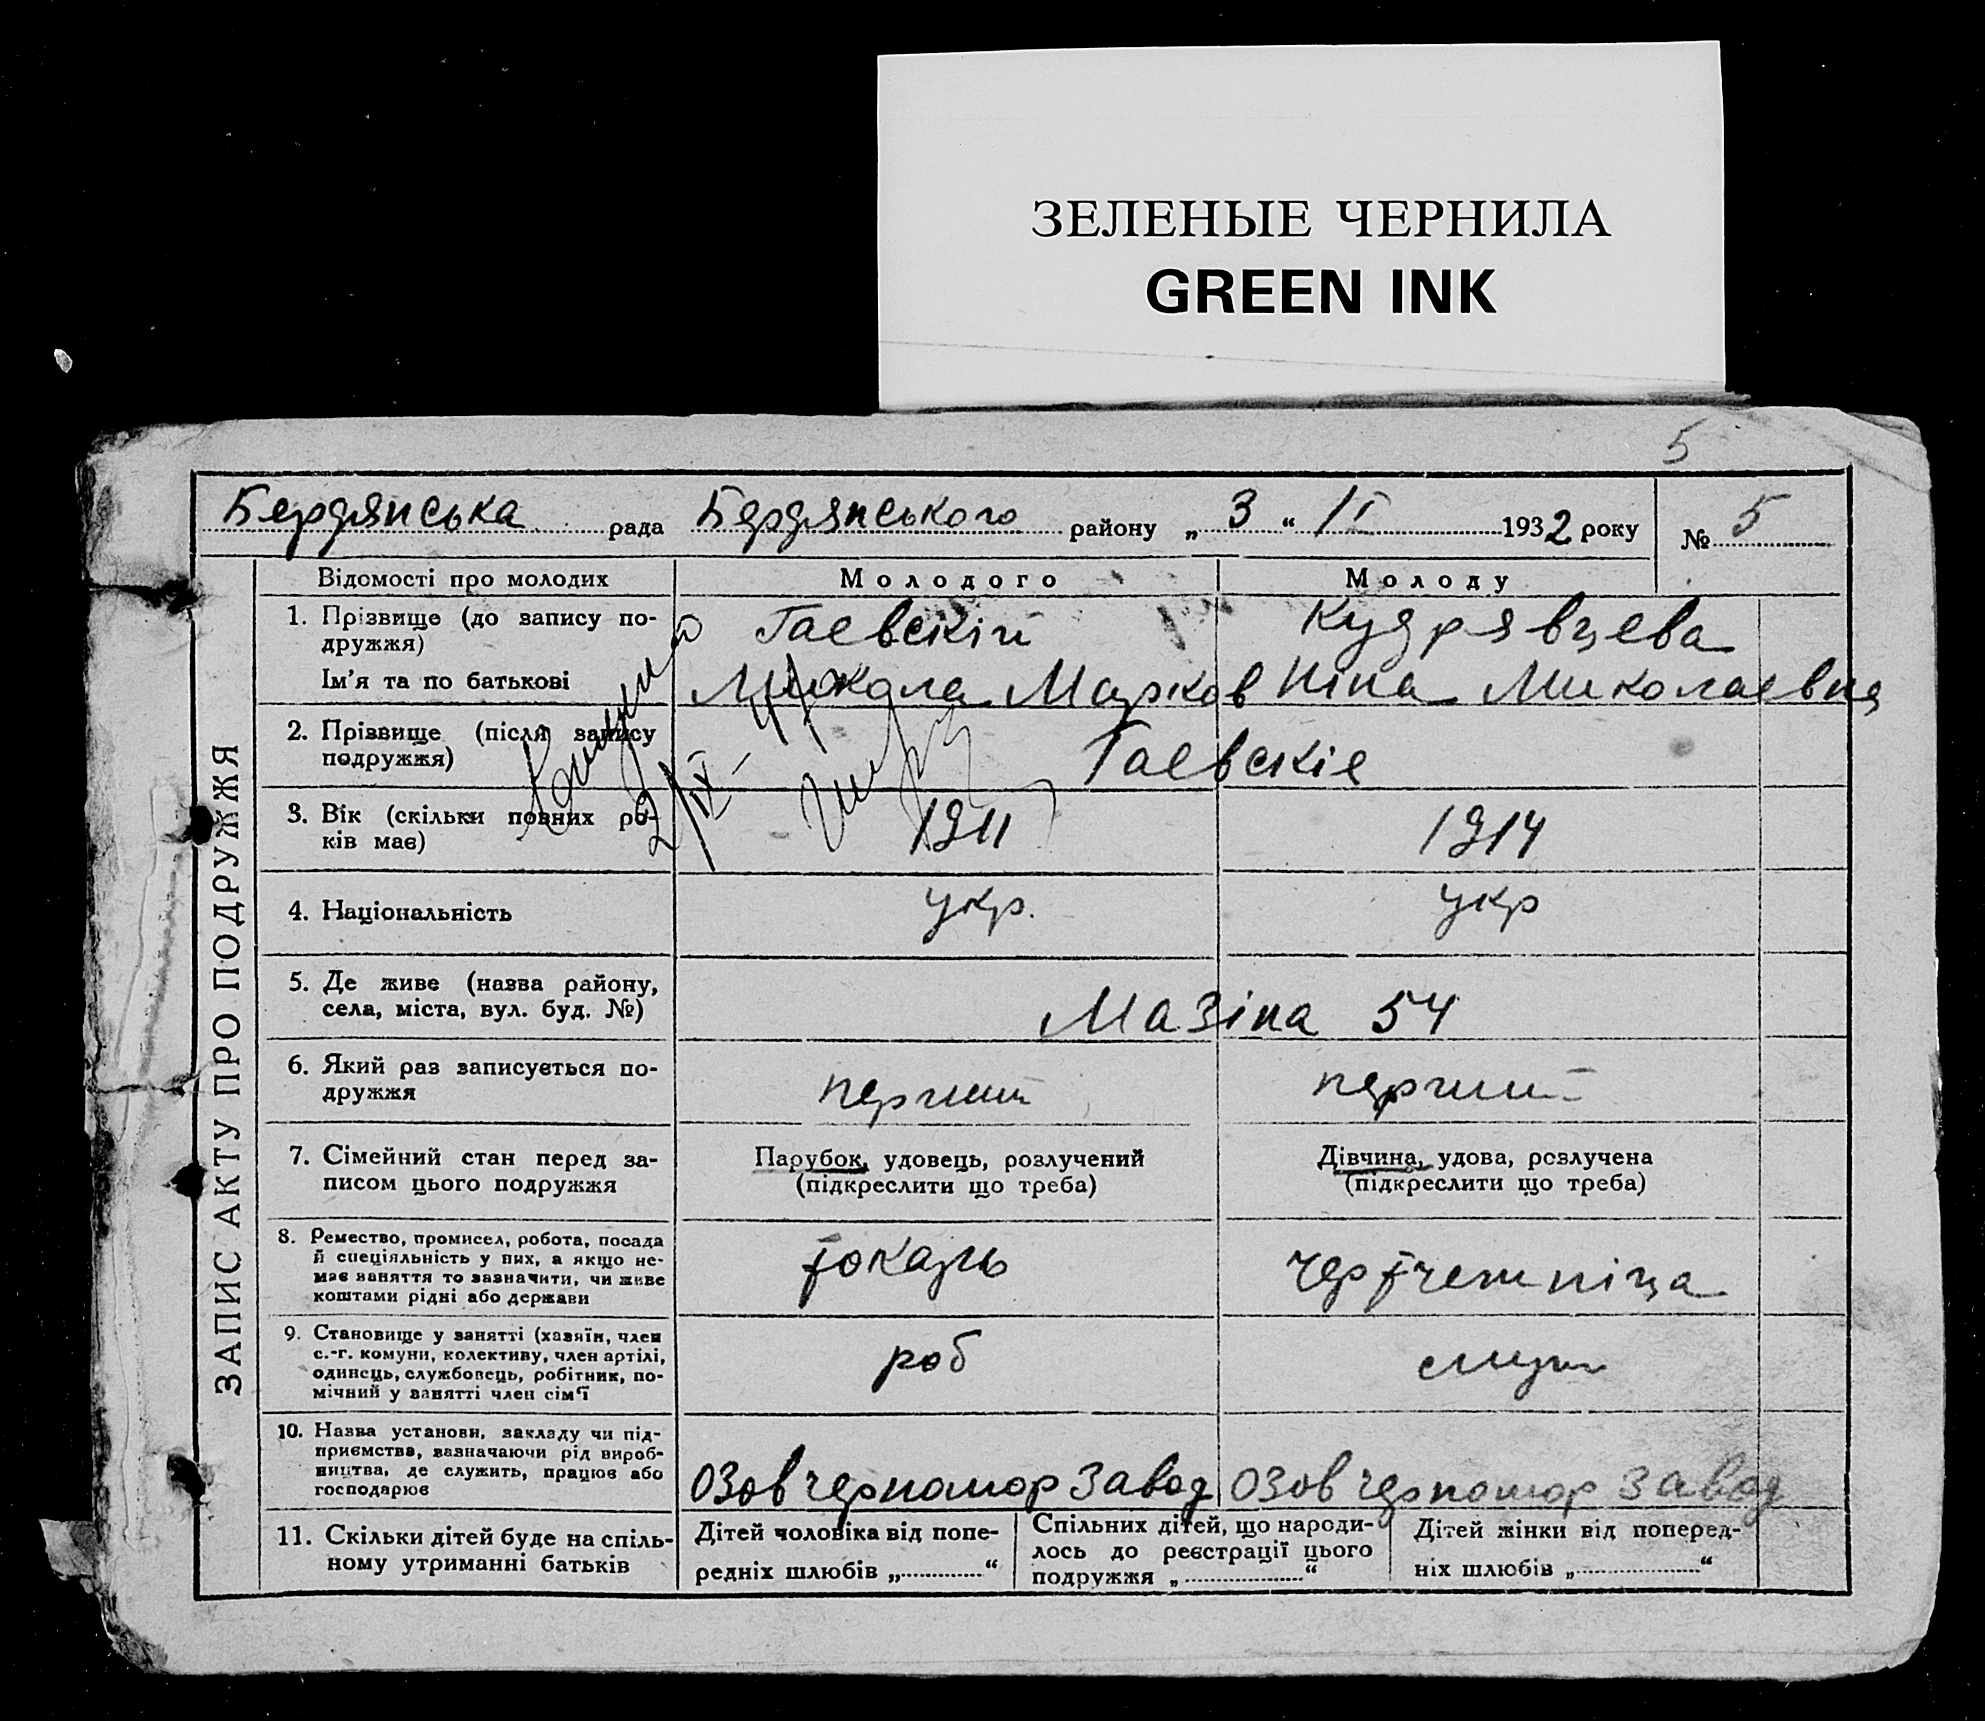 ЗЕЛЕНЫЕ ЧЕРНИЛА
GREEN INK
5
Бердянська рада Бердянського району „ 3 “ II 1932 року № 5
ЗАПИС АКТУ ПРО ПОДРУЖЖЯ
Відомості про молодих Молодого Молоду
1. Прізвище (до запису по-
дружжя)
Гаевскій Кудрявцева
Ім'я та по батькові Микола Марков Ніна Миколаевна
2. Прізвище (після запису
подружжя)
Гаевскіе
2/IX-
3. Вік (скільки повних ро-
ків має)
1911 1914
4. Національність укр. укр
5. Де живе (назва району,
села, міста, вул. буд. №)
Мазіна 54
6. Який раз записується по-
дружжя
перший перший
7. Сімейний стан перед за-
писом цього подружжя
Парубок, удовець, розлучений
(підкреслити що треба)
Дівчина, удова, розлучена
(підкреслити що треба)
8. Ремество, промисел, робота, посада
й спеціяльність у них, а якщо не-
має заняття то зазначити, чи живе
коштами рідні або держави
токарь чертчешніца
9. Становище у занятті (хазяїн, член
с.-г. комуни, колективу, член артілі,
одинець, службовець, робітник, по-
мічний у занятті член сім'ї
роб служ
10. Назва установи, закладу чи під-
приємства, зазначаючи рід вироб-
ництва, де служить, працює або
господарює
Озовчерномор завод Озовчерномор завод
11. Скільки дітей буде на спіль-
ному утриманні батьків
Дітей чоловіка від попе-
редніх шлюбів „ “
Спільних дітей, що народи-
лось до реєстрації цього
подружжя „ “
Дітей жінки від поперед-
ніх шлюбів „ “